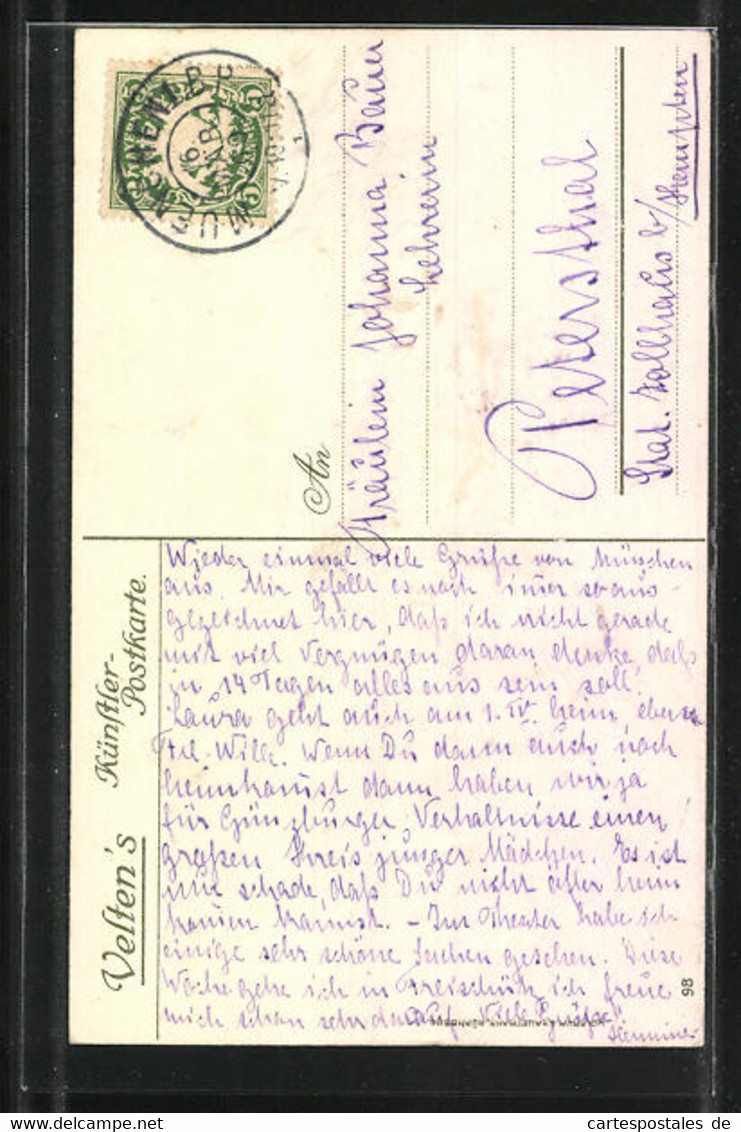 Velten's Künstler-Postkarte.
Wieder einmal viele Grüße von München
aus. Mir gefällt es noch imer so aus-
gezeichnet hier, daß ich nicht gerade
mit viel Vergnügen daran denke, daß
in 14 Tagen alles aus sein soll.
Laura geht auch am 1. IV. heim, ebenso
Frl. Wilk. Wenn Du dann auch noch
heimkamst dann haben wir ja
für Günzburger Verhältnisse einen
großen Kreis junger Mädchen. Es ist
nur schade, daß Du nicht öfter heim
kamst. – Im Theater habe ich
einige sehr schöne Sachen gesehen. Diese
Woche gehe ich in Freischütz ich freue
mich schon sehr darauf. Viele Grüße!
98
An
Fräulein Johanna Bauer
Lehrerin
Petersthal
Stat. Zollhaus b/Kempten
MUENCHEN
16
5
5
cartespostales de
www.delcampe.net